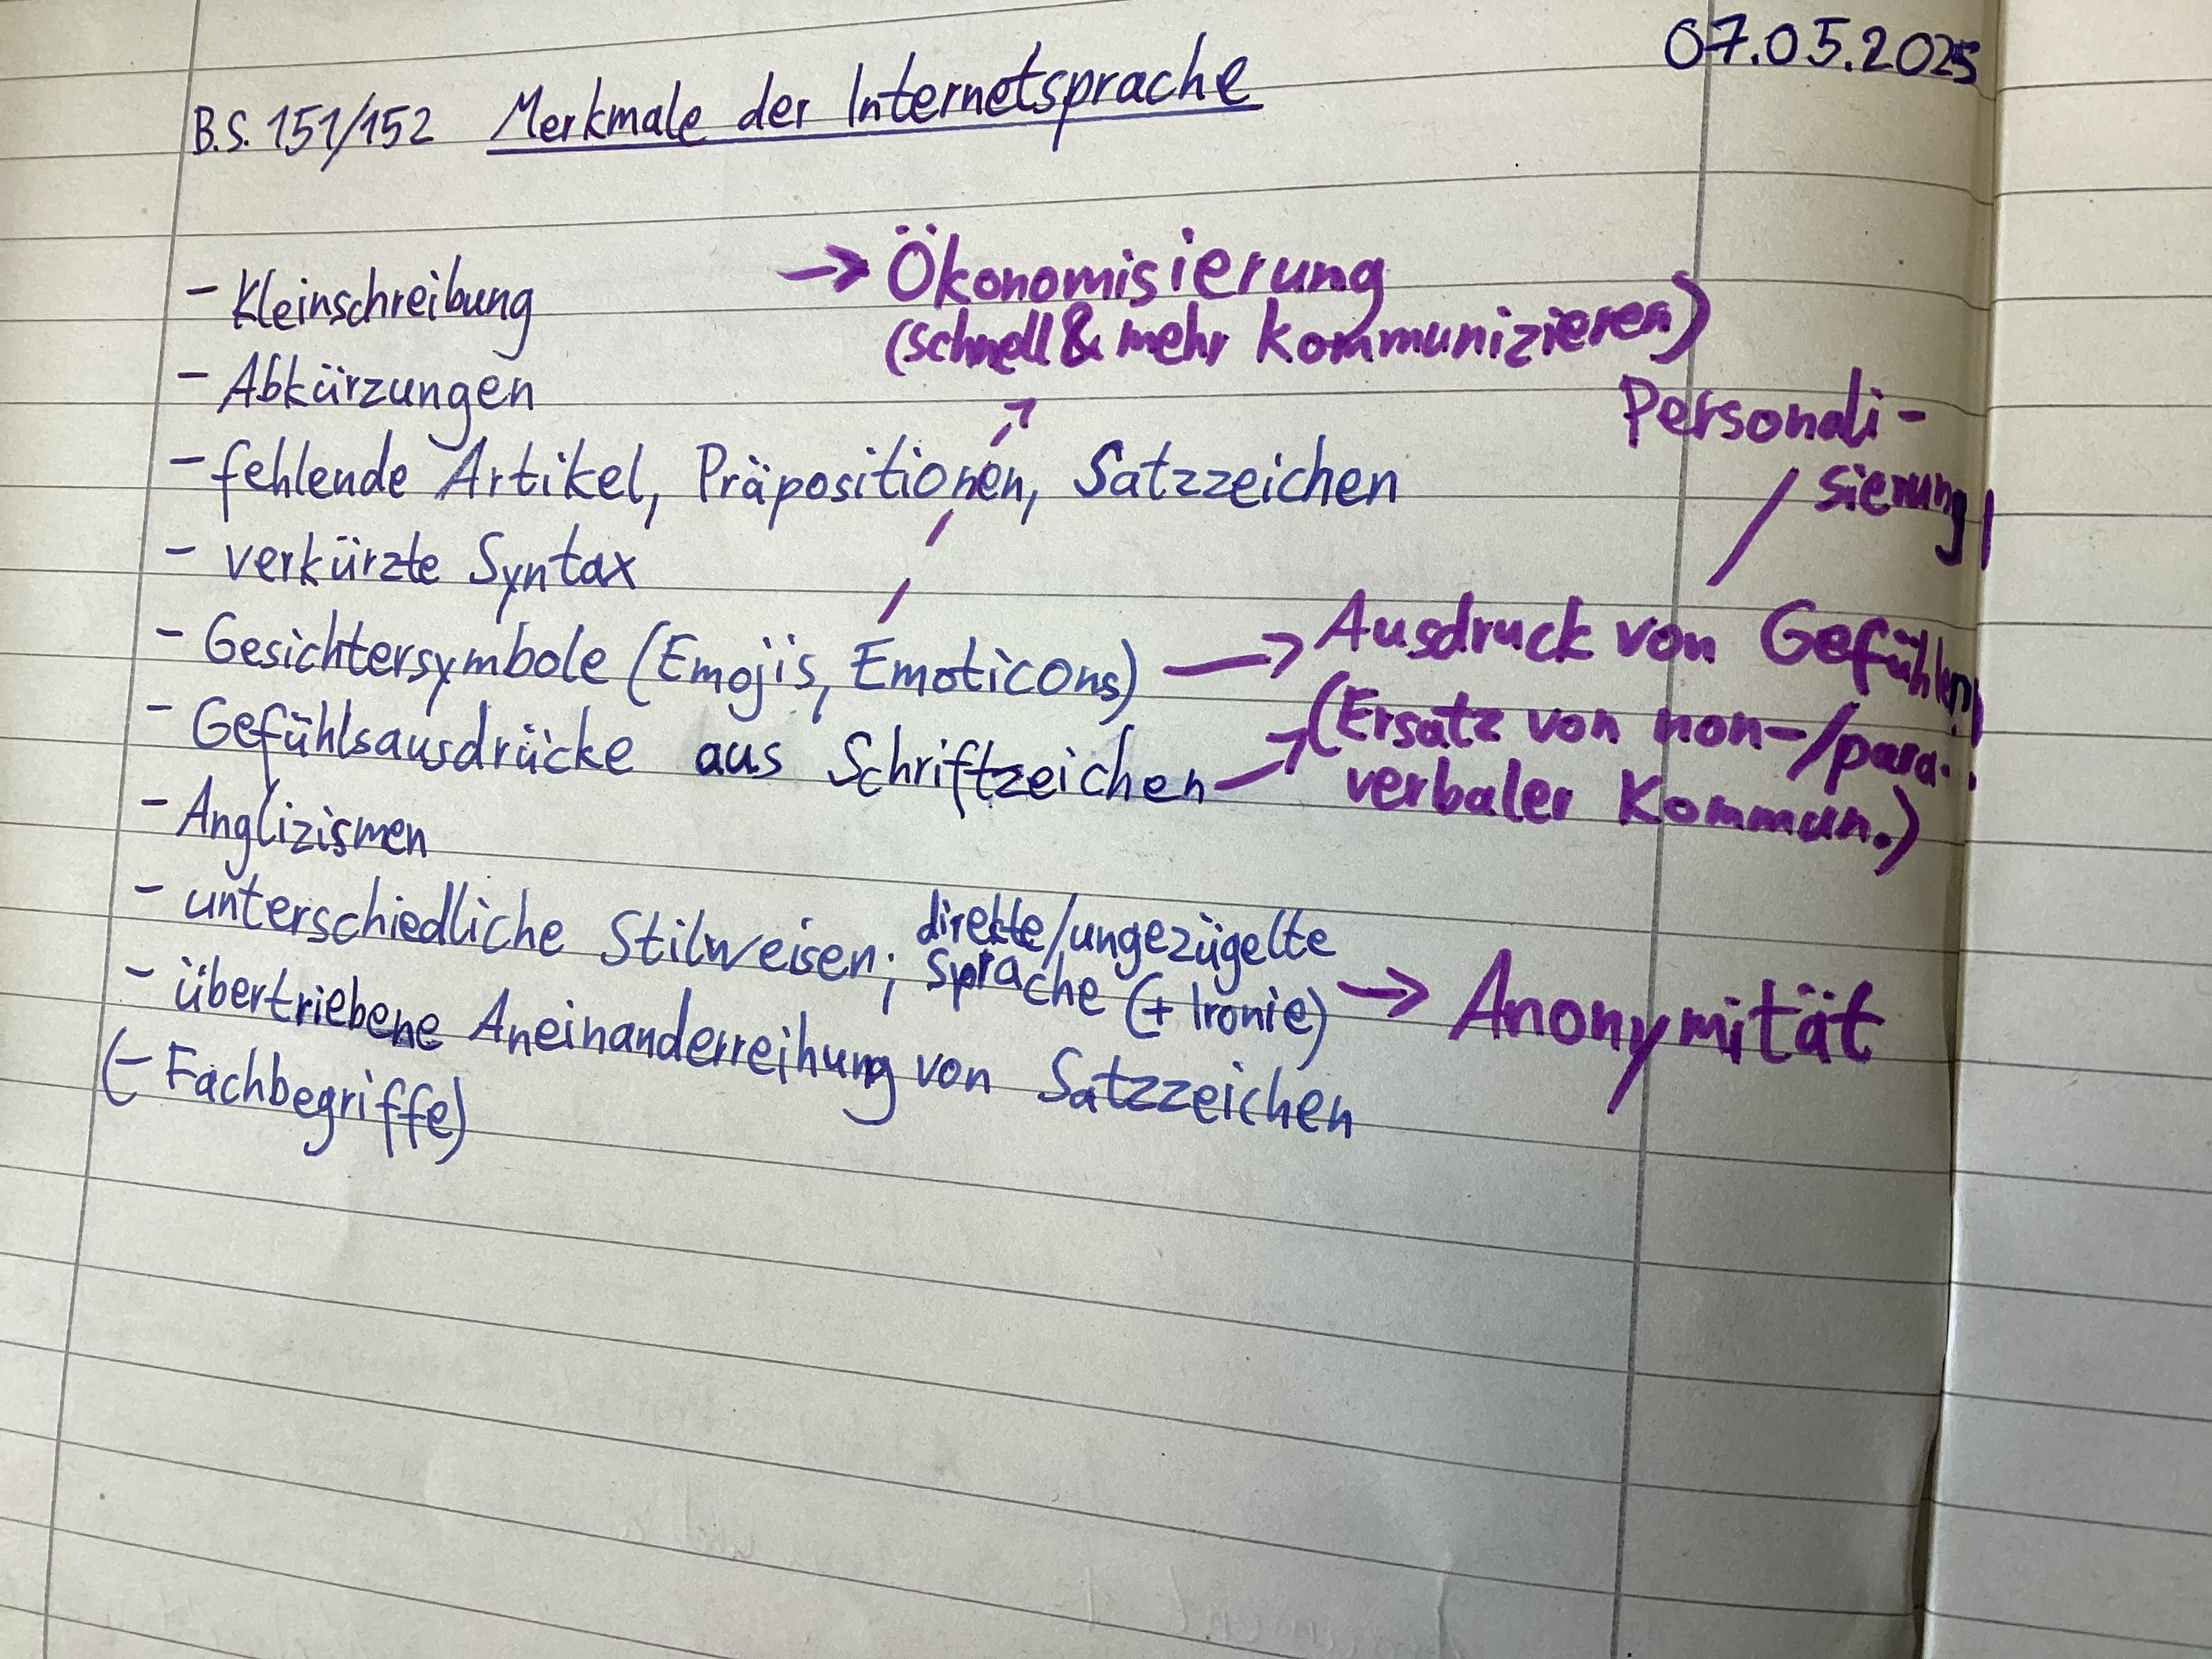 07.05.2025
B.S. 151/152 Merkmale der Internetsprache
- Kleinschreibung → Ökonomisierung
(schnell & mehr kommunizieren)
- Abkürzungen
Personali-
sierung
- fehlende Artikel, Präpositionen, Satzzeichen
- verkürzte Syntax
- Gesichtersymbole (Emojis, Emoticons) → Ausdruck von Gefühlen
(Ersatz von non-/para-
verbaler Kommun.)
- Gefühlsausdrücke aus Schriftzeichen
- Anglizismen
- unterschiedliche Stilweisen; direkte/ungezügelte
Sprache (+ Ironie) → Anonymität
- übertriebene Aneinanderreihung von Satzzeichen
(- Fachbegriffe)